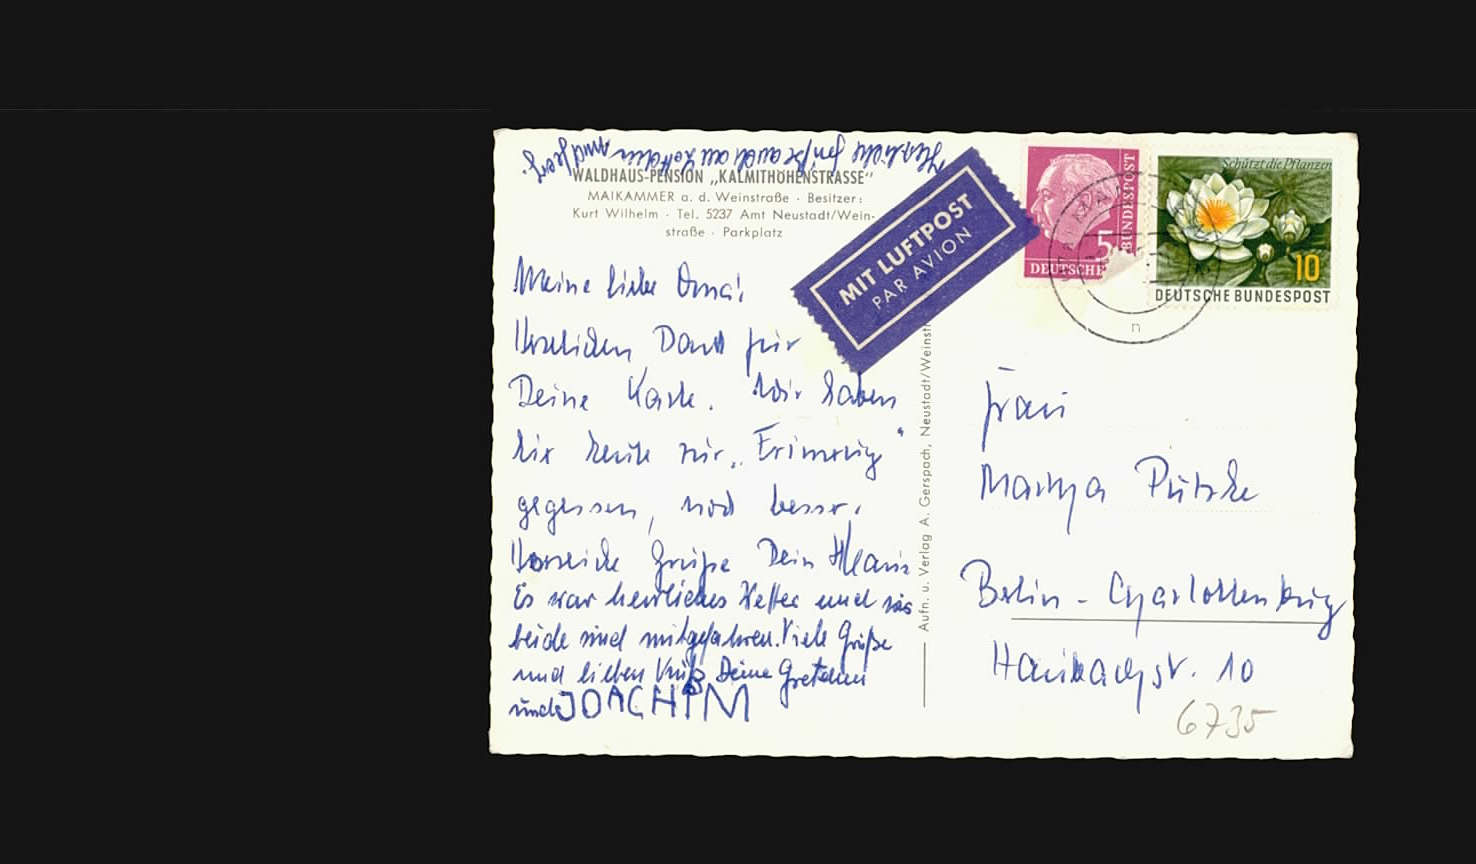 Herzliche Grüße auch an Lottchen und Georg.
WALDHAUS-PENSION „KALMITHÖHENSTRASSE"
MAIKAMMER a. d. Weinstraße · Besitzer:
Kurt Wilhelm · Tel. 5237 Amt Neustadt/Wein-
straße · Parkplatz
MIT LUFTPOST
PAR AVION
5
BUNDESPOST
DEUTSCHE
Schützt die Pflanzen
10
DEUTSCHE BUNDESPOST
n
Meine liebe Oma!
Herzlichen Dank für
Deine Karte. Wir haben
hier heute zur „Erinnerung"
gegessen, noch besser.
Grüße Dein Klaus
Es war herrliches Wetter und wir
beide sind mitgefahren. Viele Grüße
und lieben Kuß Deine Gretchen
und JOACHIM
Aufn. u. Verlag A. Gerspach, Neustadt/Weinstr
Frau
Martha
Berlin - Charlottenburg
Haubachstr. 10
6735